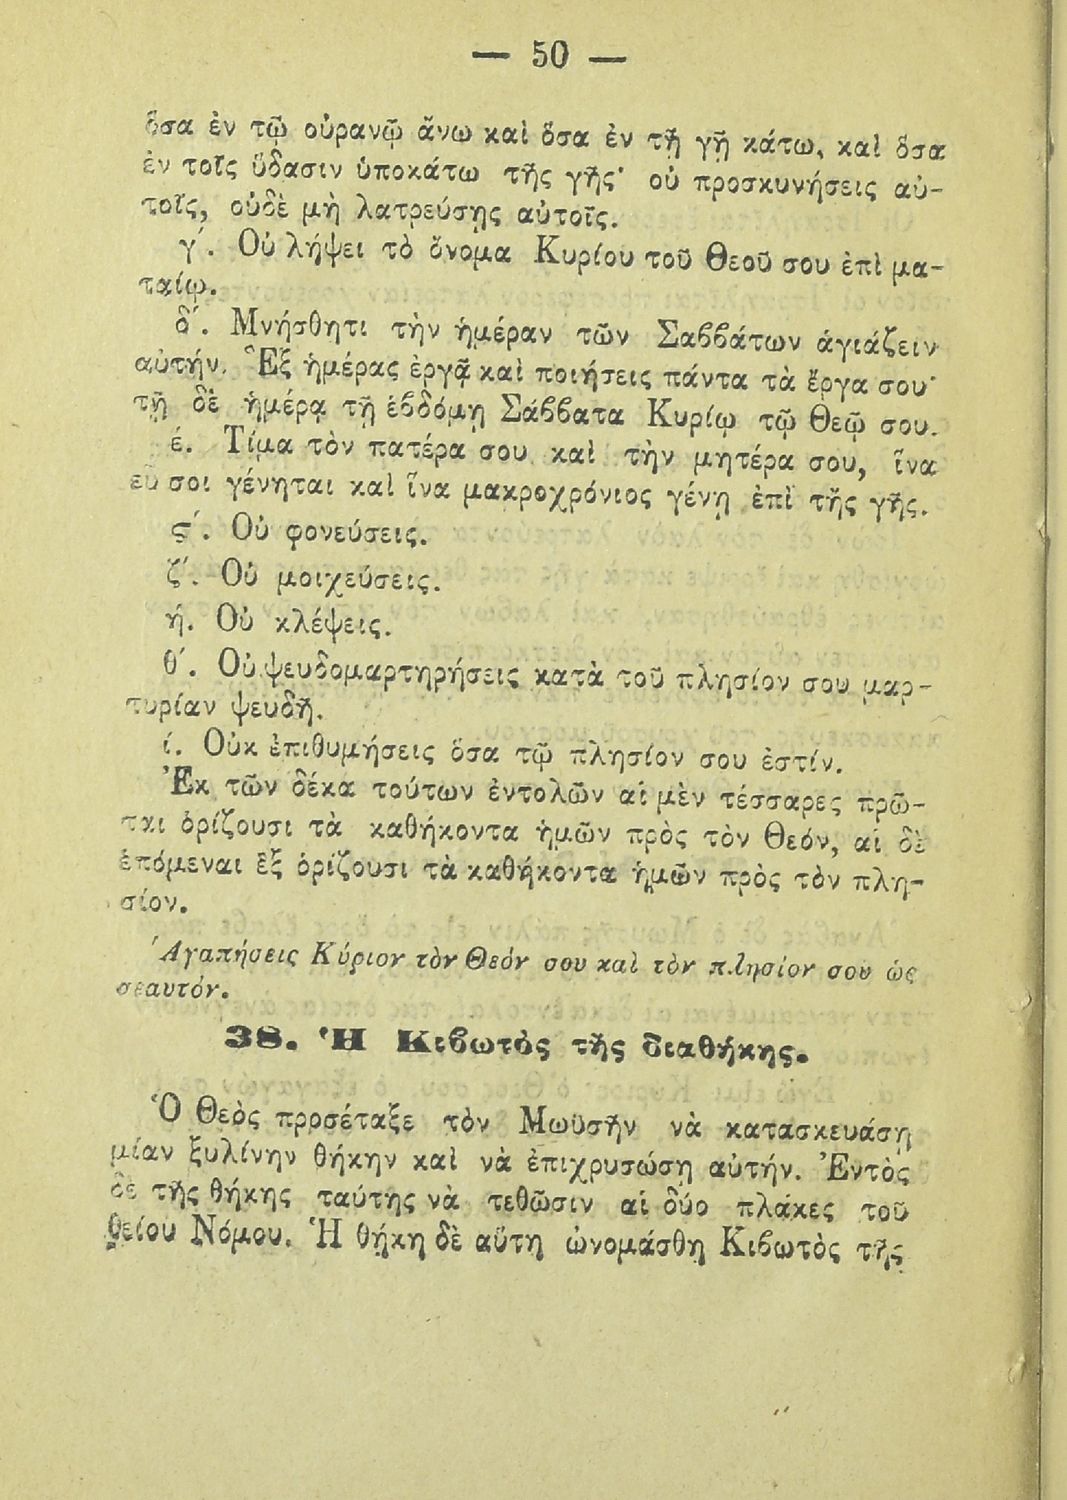 — 50 —
ὅσα ἐν τῷ οὐρανῷ ἄνω καὶ ὅσα ἐν τῇ γῇ κάτω, καὶ ὅσα
ἐν τοῖς ὕδασιν ὑποκάτω τῆς γῆς· οὐ προσκυνήσεις αὐ-
τοῖς, οὐδὲ μὴ λατρεύσῃς αὐτοῖς.
γ΄. Οὐ λήψει τὸ ὄνομα Κυρίου τοῦ Θεοῦ σου ἐπὶ μα-
ταίῳ.
δ΄. Μνήσθητι τὴν ἡμέραν τῶν Σαββάτων ἁγιάζειν
αὐτήν. Ἓξ ἡμέρας ἐργᾷ καὶ ποιήσεις πάντα τὰ ἔργα σου·
τῇ δὲ ἡμέρᾳ τῇ ἑβδόμῃ Σάββατα Κυρίῳ τῷ Θεῷ σου.
έ. Τίμα τὸν πατέρα σου καὶ τὴν μητέρα σου, ἵνα
εὖ σοι γένηται καὶ ἵνα μακροχρόνιος γένῃ ἐπὶ τῆς γῆς.
ς΄. Οὐ φονεύσεις.
ζ΄. Οὐ μοιχεύσεις.
ή. Οὐ κλέψεις.
θ΄. Οὐ ψευδομαρτηρήσεις κατὰ τοῦ πλησίον σου μαρ-
τυρίαν ψευδῆ.
ί. Οὐκ ἐπιθυμήσεις ὅσα τῷ πλησίον σου ἐστίν.
Ἐκ τῶν δέκα τούτων ἐντολῶν αἱ μὲν τέσσαρες πρῶ-
ται ὁρίζουσι τὰ καθήκοντα ἡμῶν πρὸς τὸν Θεόν, αἱ δὲ
ἑπόμεναι ἓξ ὁρίζουσι τὰ καθήκοντα ἡμῶν πρὸς τὸν πλη-
σίον.
Ἀγαπήσεις Κύριον τὸν Θεόν σου καὶ τὸν πλησίον σου ὡς
σεαυτόν.
38. Ἡ Κιβωτὸς τῆς διαθήκης.
Ὁ Θεὸς προσέταξε τὸν Μωϋσῆν νὰ κατασκευάσῃ
μίαν ξυλίνην θήκην καὶ νὰ ἐπιχρυσώσῃ αὐτήν. Ἐντὸς
δὲ τῆς θήκης ταύτης νὰ τεθῶσιν αἱ δύο πλάκες τοῦ
θείου Νόμου. Ἡ θήκη δὲ αὕτη ὠνομάσθη Κιβωτὸς τῆς